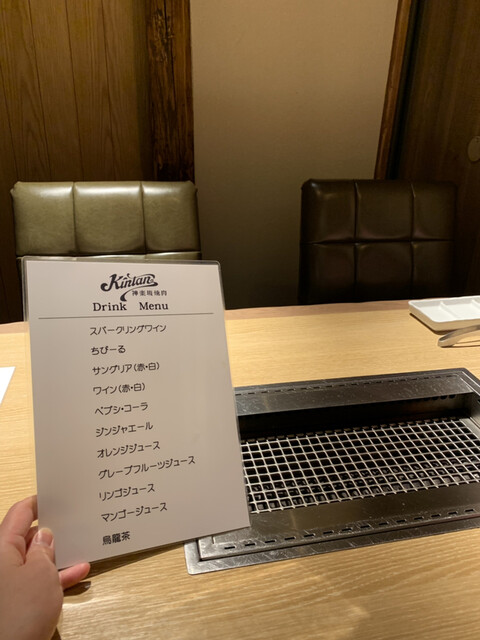 Kintan
神楽坂焼肉
Drink Menu
スパークリングワイン
ちびーる
サングリア(赤・白)
ワイン(赤・白)
ペプシ・コーラ
ジンジャエール
オレンジジュース
グレープフルーツジュース
リンゴジュース
マンゴージュース
烏龍茶